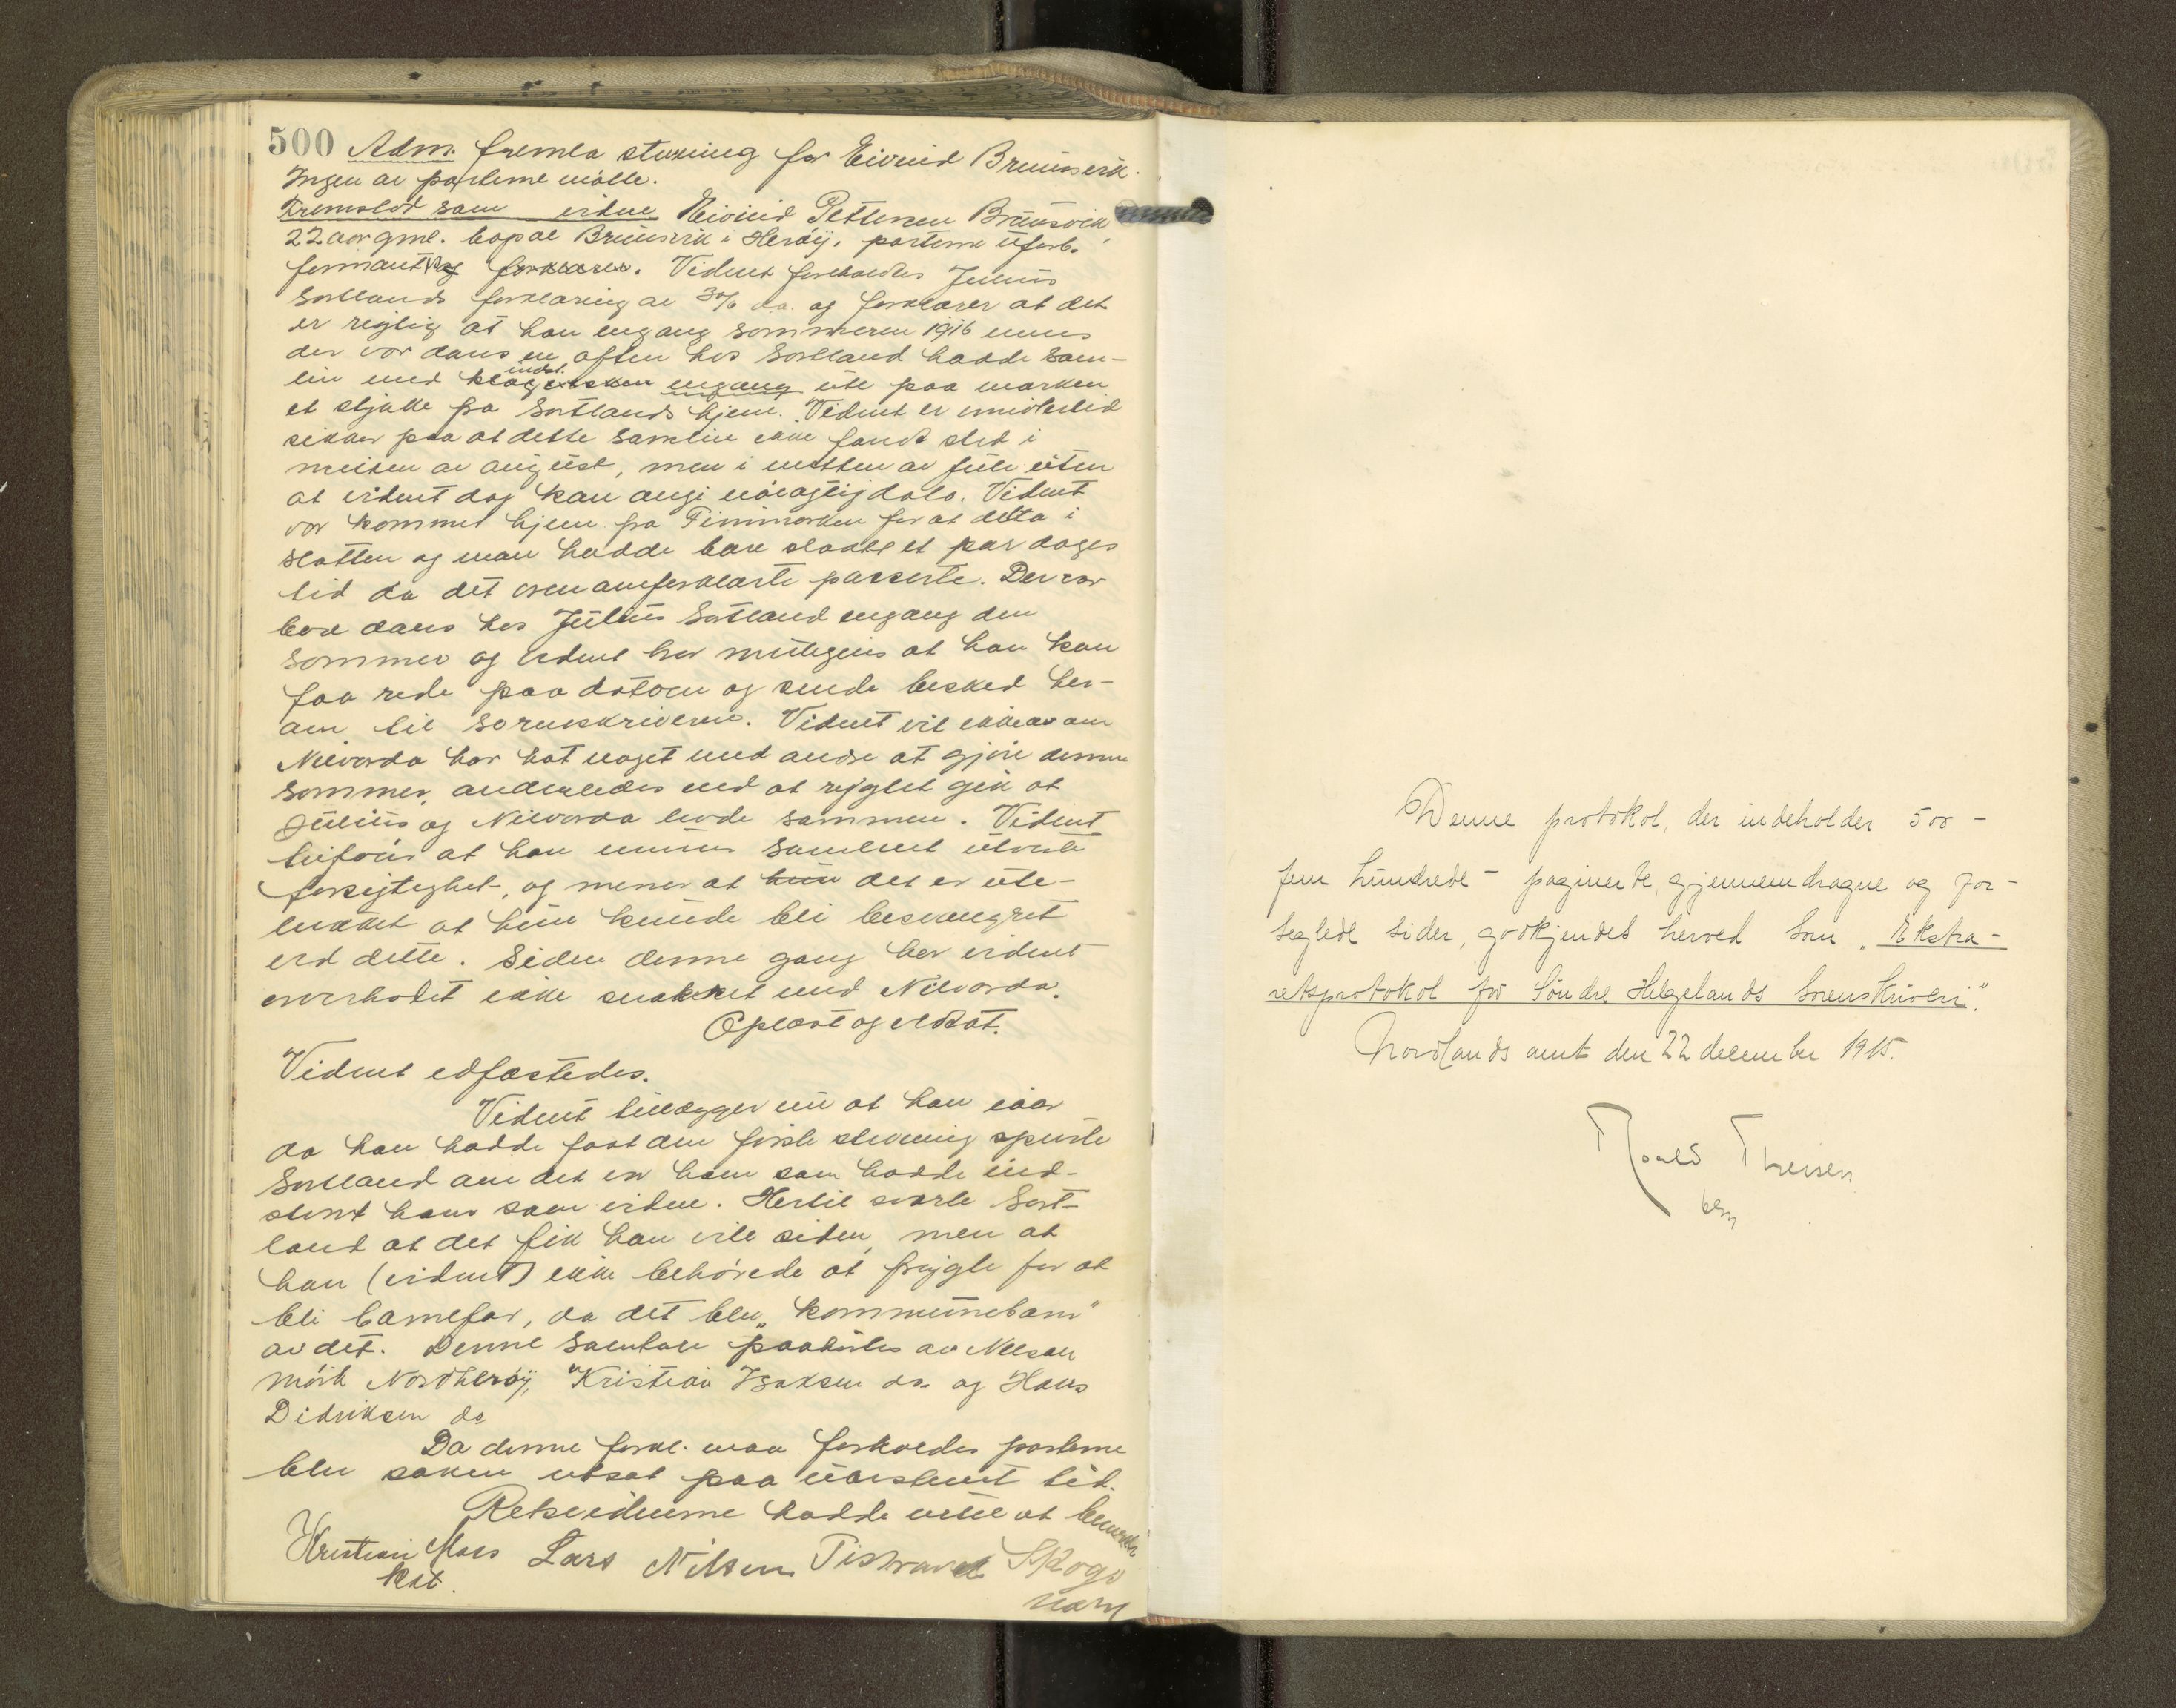 500 Adm. fremla stevning for Eivind Brunsvik.
Ingen av parterne møtte.
Fremstod som vidne Eivind Pettersen Brunsvik
22 aar gml. bopæl Brunsvik i Herøy, parterne ubesl.
formant og forklarer. Vidnet foreholdtes Julius
Sortlands forklaring av 30/6 da. og forklarer at det
er rigtig at han engang sommeren 1916 mens
der var dans en aften hos Sortland hadde sam-
leie med klagersken indst. engang ute paa marken
et stykke fra Sortlands hjem. Vidnet er imidlertid
sikker paa at dette samleie ikke fandt sted i
midten av august, men i midten av juli uten
at vidnet dog kan angi nøiagtig dato. Vidnet
var kommet hjem fra Finmarken for at delta i
slotten og man hadde bare slaatt et par dages
tid da det ovenomforklarte passerte. Der var
bare dans hos Julius Sortland engang den
sommer og vidnet har muligens at han kan
faa rede paa datoen og sende besked her-
om til sorenskriveren. Vidnet vil ikke om
Nilvarda har hat noget med andre at gjøre denne
sommer, anderledes end at rygtet gik at
Julius og Nilvarda levde sammen. Vidnet
tilføier at han under samleiet utviste
forsigtighet, og mener at hun det er ute-
lukket at hun kunde bli besvangret
ved dette. Siden denne gang har vidnet
overhodet ikke snakket med Nilvarda.
Oplæst og vedtat.
Vidnet edfæstedes.
Vidnet tillægger nu at han iaar
da han hadde faat den første stevning spurte
Sortland om det var ham som hadde ind-
stevnt ham som vidne. Hertil svarte Sort-
land at det fik han vite siden, men at
han (vidnet) ikke behøvede at frygte for at
bli barnefar, da det blev "kommunebarn"
av det. Denne samtale paahørtes av Nelson
Mørk Nordherøy, Kristian Isaksen do. og Hans
Didriksen do
Da denne forkl. maa forholdes parterne
blev saken utsat paa uavstemt tid.
Retsvidnerne hadde intet at bemerke
Kristian Moes Lars Nilsen Tistrand Skogs
kst.
Denne protokol, der indeholder 500 -
fem hundrede - paginerte, gjennemdragne og for-
seglede sider, godkjendes herved som "Ekstra-
retsprotokol for Søndre Helgelands Sorenskriveri".
Nordlands amt den 22 december 1915.
Roald Thesen